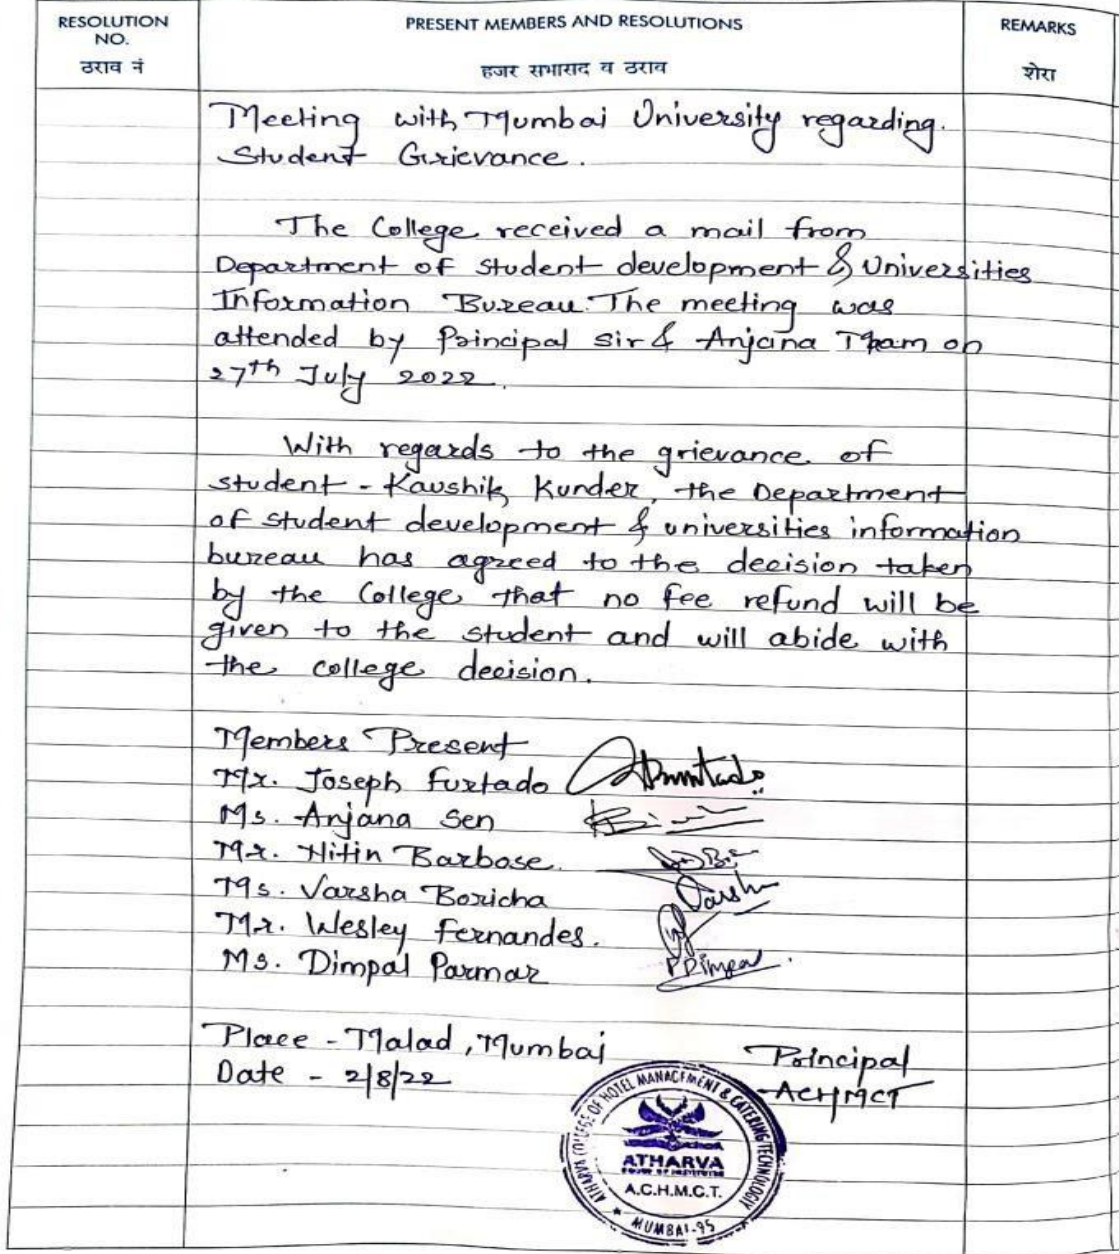 RESOLUTION NO.
ठराव नं
PRESENT MEMBERS AND RESOLUTIONS
हजर सभासद व ठराव
REMARKS
शेरा
Meeting with Mumbai University regarding.
Student Grievance.
The College received a mail from
Department of student development & Universities
Information Bureau. The meeting was
attended by Principal sir & Anjana Mam on
27th July 2022.
With regards to the grievance of
student - Kaushik Kunder, the Department
of student development & universities information
bureau has agreed to the decision taken
by the College that no fee refund will be
given to the student and will abide with
the college decision.
Members Present
Mr. Joseph Furtado
Ms. Anjana Sen
Mr. Nitin Barbose.
Ms. Varsha Boricha
Varsha
Mr. Wesley Fernandes.
Ms. Dimpal Parmar
Place - Malad, Mumbai
Date - 2/8/22
Principal
ACHMCT
ATHARVA COLLEGE OF HOTEL MANAGEMENT & CATERING TECHNOLOGY
ATHARVA
A.C.H.M.C.T.
★ MUMBAI-95